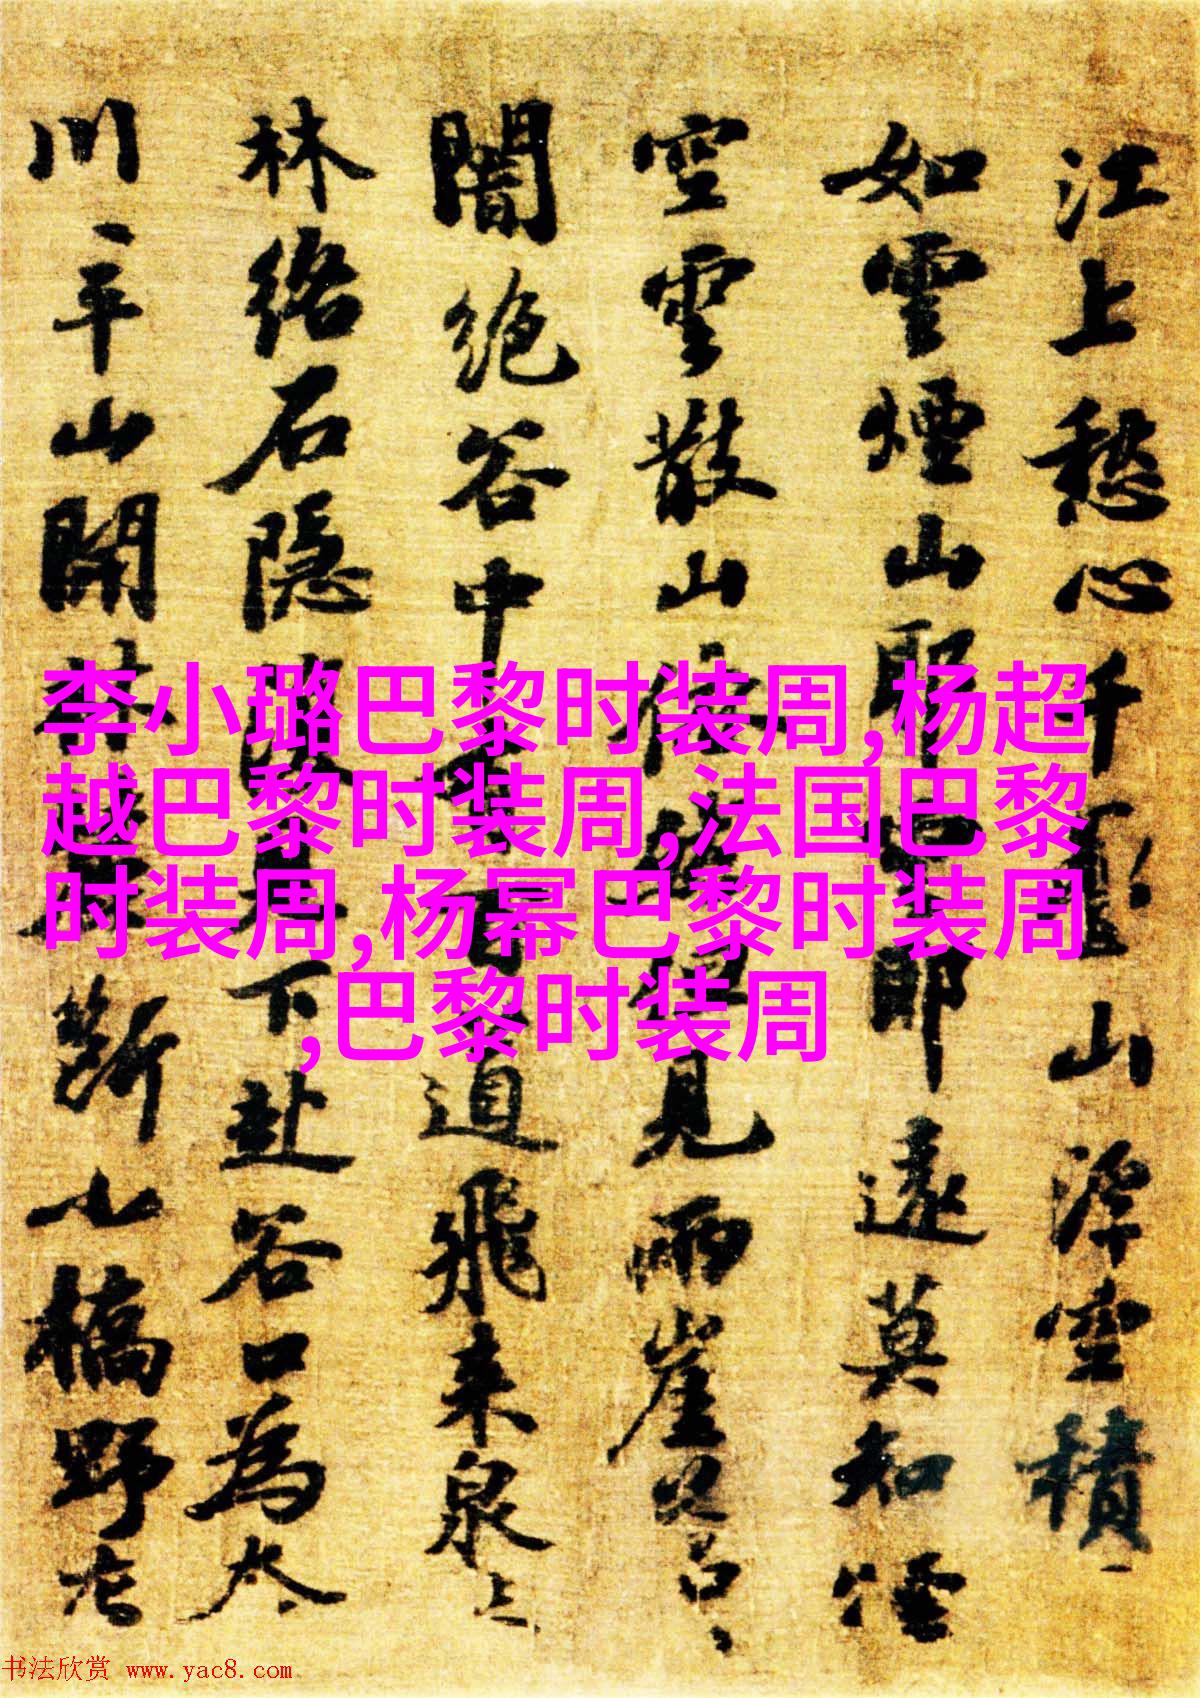 江上愁心千疊山浮空積
如雲煙山耶雲耶遠莫知煙
空雲散山依然但見兩崖蒼
闇絕谷中百道飛來泉
林絡石隱下赴谷口為
川平山開林斷小橋野店
李小璐巴黎时装周,杨超
越巴黎时装周,法国巴黎
时装周,杨幂巴黎时装周
,巴黎时装周
书法欣赏 www.yac8.com